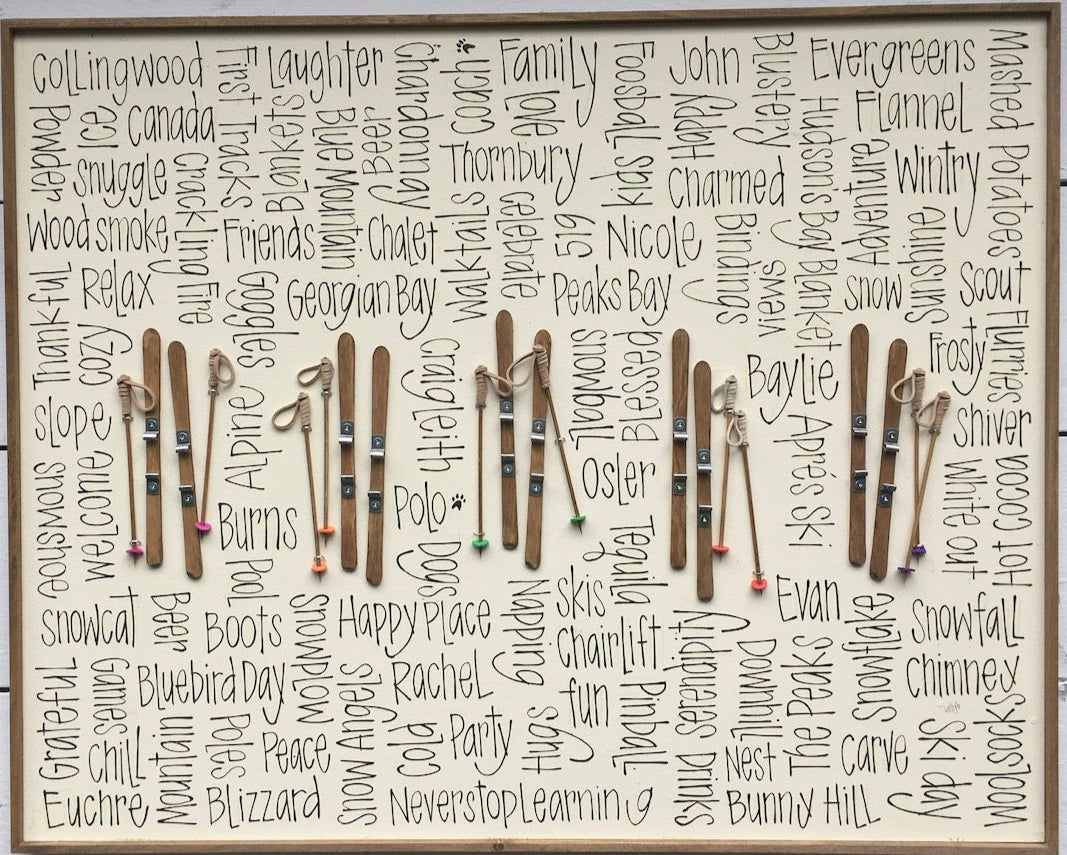 Collingwood
First Tracks
Laughter
Chardonnay
Coach
Family
Foosball
John
Blustery
Evergreens
Mashed Potatoes
Powder
Ice
Canada
Blankets
Blue Mountain
Beer
Love
Happy
Hudson's Bay Blanket
Flannel
Snuggle
Crackling Fire
Thornbury
Kids
Charmed
Adventure
Wintry
Woodsmoke
Friends
Chalet
Walktails
Celebrate
519
Nicole
Bindings
Views
Sunshine
Thankful
Relax
Goggles
Georgian Bay
Peaks Bay
Snow
Scout
Cozy
Craigleith
Snowball
Blessed
Baylie
Frosty
Flurries
Slope
Alpine
Après Ski
Shiver
Snowshoe
Welcome
Burns
Polo
Osler
White out
Hot Cocoa
Pool
Dogs
Tequila
Snowcat
Beer
Boots
Snowplow
Happy Place
Napping
Skis
Chairlift
Serendipity
Evan
Snowflake
Snowfall
Grateful
Games
Bluebird Day
Snow Angels
Rachel
Fun
Pinball
Downhill
The Peaks
Chimney
Chill
Mountain
Poles
Peace
Cold
Party
Hugs
Drinks
Nest
Carve
Ski day
Woolsocks
Euchre
Blizzard
Never stop Learning
Bunny Hill